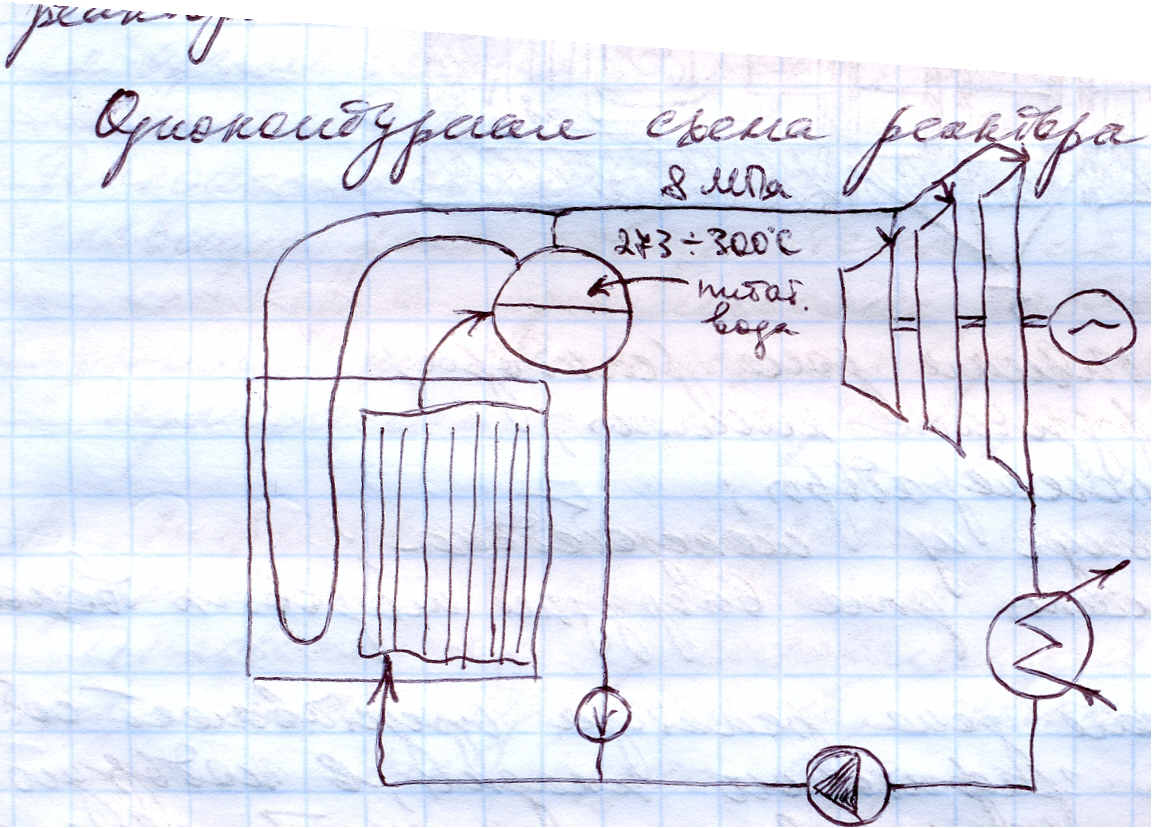 Одноконтурная схема реактора
8 МПа
273÷300°С
питат.
вода